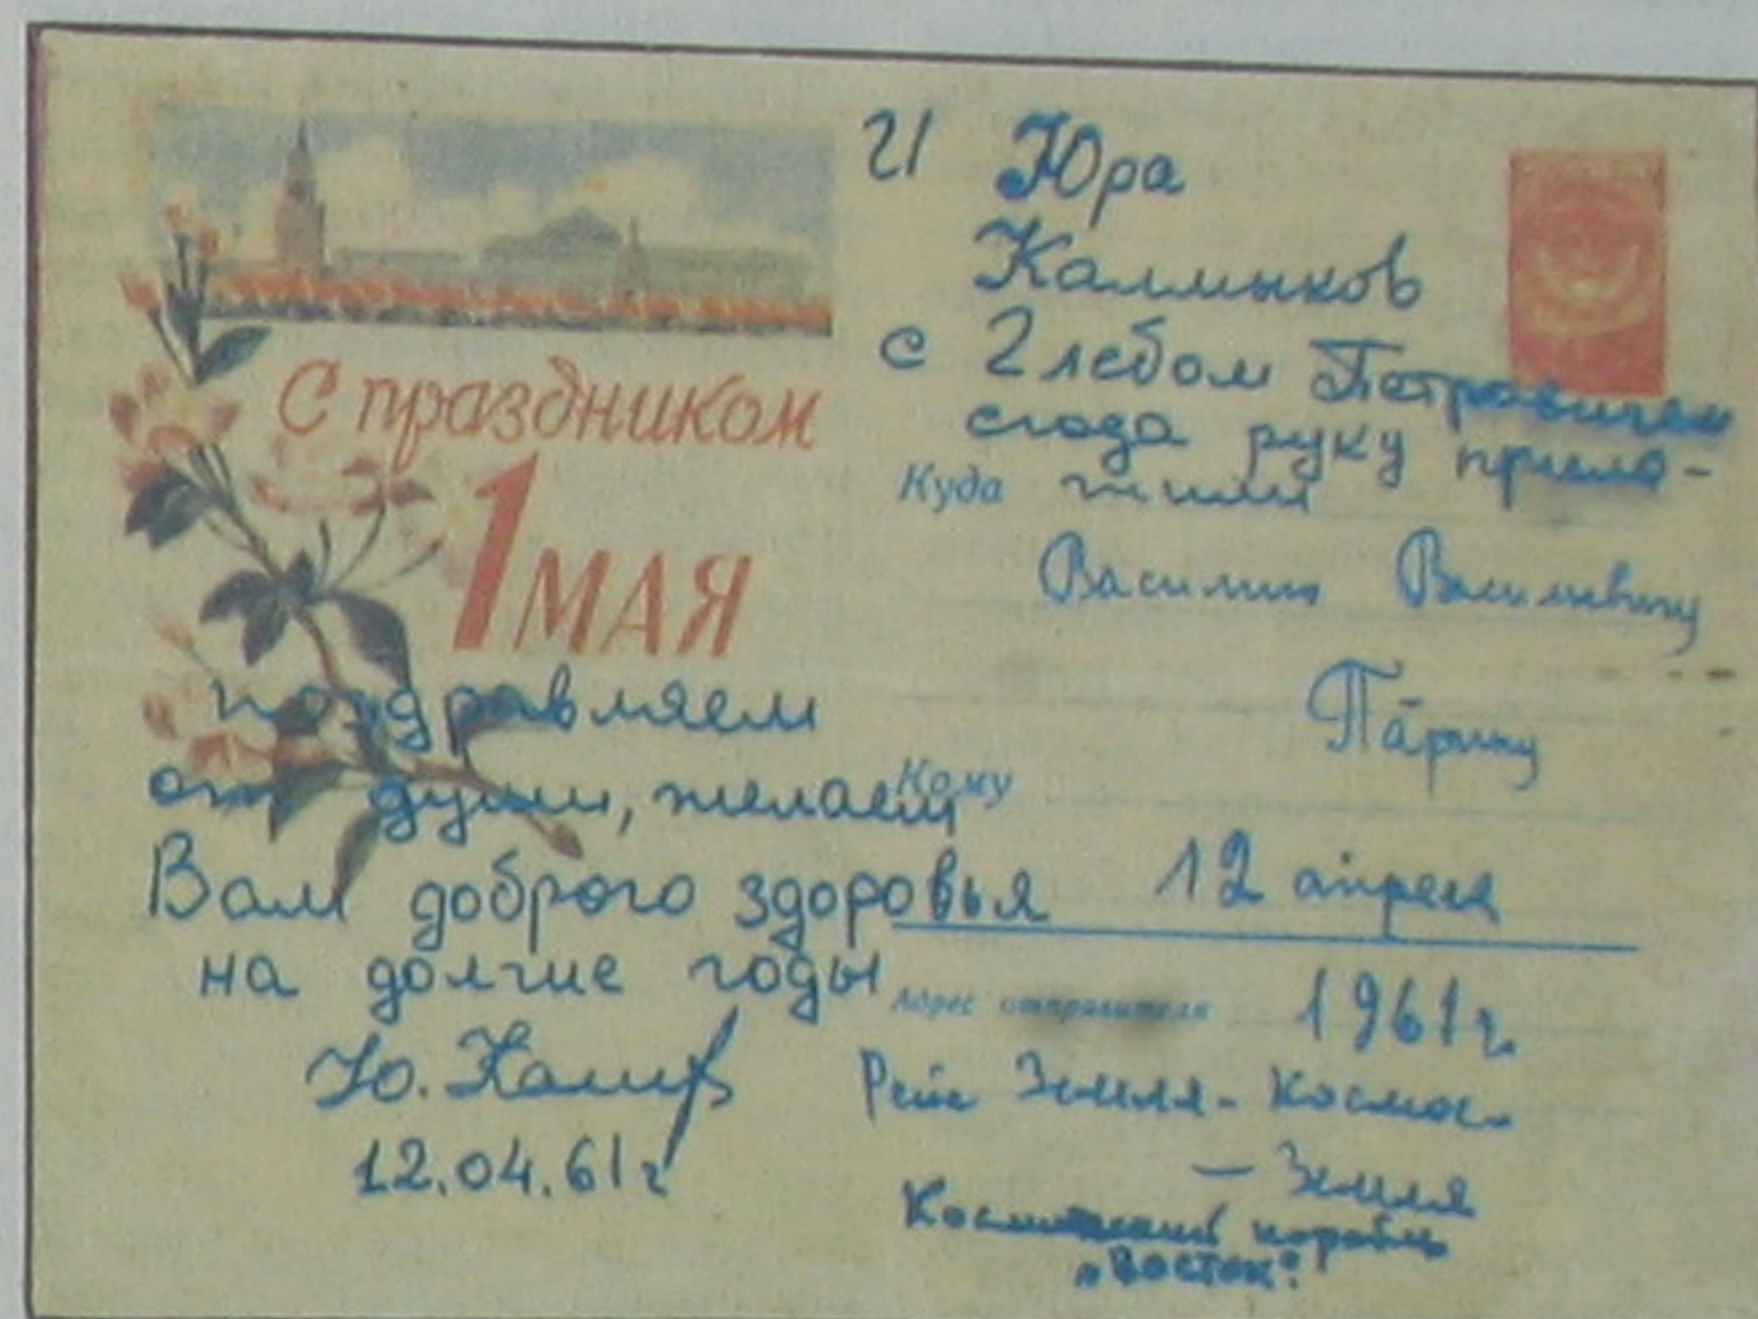 С праздником
1 МАЯ
поздравляем
от души, желаем
Вам доброго здоровья
на долгие годы
12.04.61г
И Юра
Калмыков
с Глебом Петровичем
сюда руку прило-
Куда жили
Василию Васильевичу
Парину
Кому
12 апреля
Адрес отправителя 1961г.
Рейс Земля - Космос
- Земля
Космический корабль
„Восток".